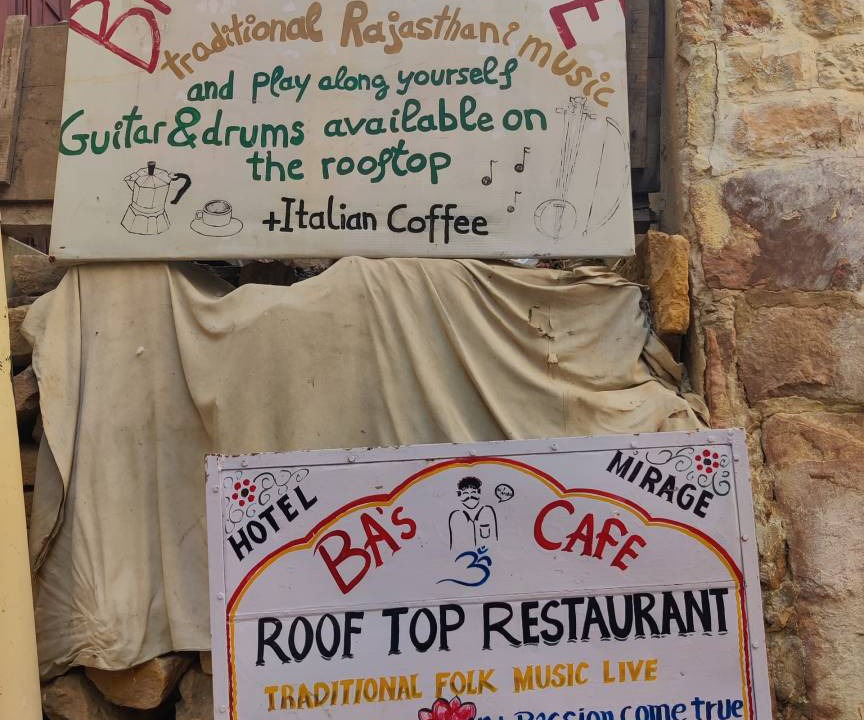 traditional Rajasthani music
and play along yourself
Guitar & drums available on
the rooftop
+Italian Coffee
HOTEL MIRAGE
BA's CAFE
ॐ
ROOF TOP RESTAURANT
TRADITIONAL FOLK MUSIC LIVE
Passion come true